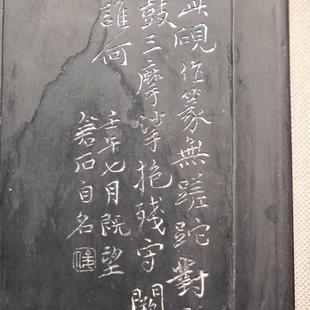 此硯作篆無蹉跎對
鼓三摩挲抱殘守闕
誰何
壬午七月既望
蒼石自名